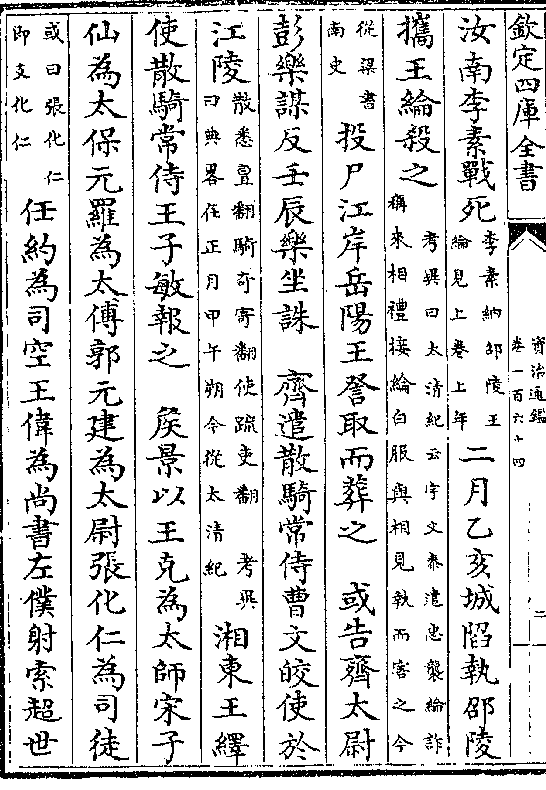 欽定四庫全書
資治通鑑
卷一百六十四
二
汝南李素戰死李素納邵陵王綸見上卷上年二月乙亥城陷執邵陵
攜王綸殺之考異曰太清紀云宇文泰遣忠襲綸詐稱來相禮接綸白服與相見執而害之今
從梁書南史投尸江岸岳陽王詧取而葬之 或告齊太尉
彭樂謀反壬辰樂坐誅 齊遣散騎常侍曹文皎使於
江陵散悉亶翻騎奇寄翻使疏吏翻 考異曰典畧在正月甲午朔今從太清紀湘東王繹
使散騎常侍王子敏報之 矦景以王克為太師宋子
仙為太保元羅為太傅郭元建為太尉張化仁為司徒
或曰張化仁即支化仁任約為司空王偉為尚書左僕射索超世